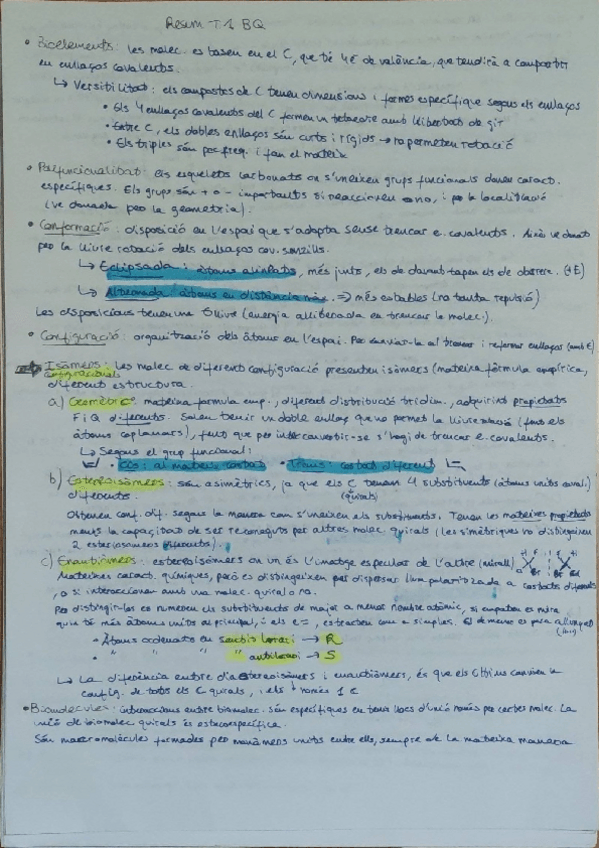 Resum T.1 BQ
• Bioelements: les molec. es basen en el C, que té 4 é de valència, que tendirà a compartir
en enllaços covalents.
↳ Versatilitat: els compostos de C tenen dimensions i formes específique segons els enllaços
• Els 4 enllaços covalents del C formen un tetaedre amb llibertat de gir
• Entre C, els dobles enllaços són curts i rígids → no permeten rotació
• Els triples són poc freq. i fan el mateix
• Polifuncionalitat: els esquelets carbonats on s'uneixen grups funcionals donen caract.
específiques. Els grups són + o - importants si reaccionen o no, i per la localització
(ve donada per la geometria).
• Conformació: disposició en l'espai que s'adopta sense trencar e. covalents. Això ve donat
per la lliure rotació dels enllaços cov. senzills.
↳ Eclipsada: àtoms alineats, més junts, els de davant tapen els de darrere. (+E)
↳ Alternada: àtoms en distància màx. ⇒ més estables (no tanta repulsió)
Les disposicions tenen una E lliure (energia alliberada en trencar la molec.).
• Configuració: organització dels àtoms en l'espai. Per canviar-la al trencar i reformar enllaços (amb E)
Isòmers configuracionals: les molec de diferent configuració presenten isòmers (mateixa fórmula empírica,
diferent estructura.
a) Geomètric: mateixa formula emp., diferent distribució tridim., adquirint propietats
F i Q diferents. Solen tenir un doble enllaç que no permet la lliure rotació (fent els
àtoms coplanars), fent que per interconvertir-se s'hagi de trencar e. covalents.
↳ Segons el grup funcional:
• Cis: al mateix costat • Trans: costat diferent
b) Estereoisòmers: són asimètrics, ja que els C tenen 4 substituents (àtoms units a
diferents. (quirals)
Obtenen conf. dif. segons la manera com s'uneixen els substituents. Tenen les mateixes propietats
menys la capacitat de ser reconeguts per altres molec quirals (les simètriques no distingeixen
2 estereoisòmers diferents).
c) Enantiòmers: estereoisòmers on un és l'imatge especular de l'altre (mirall)
Mateixes caract. químiques, però es distingeixen per dispersar llum polaritzada a costats diferents
, o si interaccionen amb una molec. quiral o no.
Per distingir-los es numeren els substituents de major a menor nombre atòmic, si empaten es mira
quin té més àtoms units al principal, i els e=, es tracten com a simples. El de menys es posa allunyat
• Àtoms ordenats en sentit horari → R
• " " " " antihorari → S
↳ La diferència entre diastereoisòmers i enantiòmers, és que els últims canvien la
config. de tots els C quirals, i els només 1 C
• Biomolecules: interaccions entre biomolec. són específiques en tenir llocs d'unió només per certes molec. La
unió de biomolec quirals és estereoespecífica.
Són macromolècules formades per monòmers units entre ells, sempre de la mateixa manera